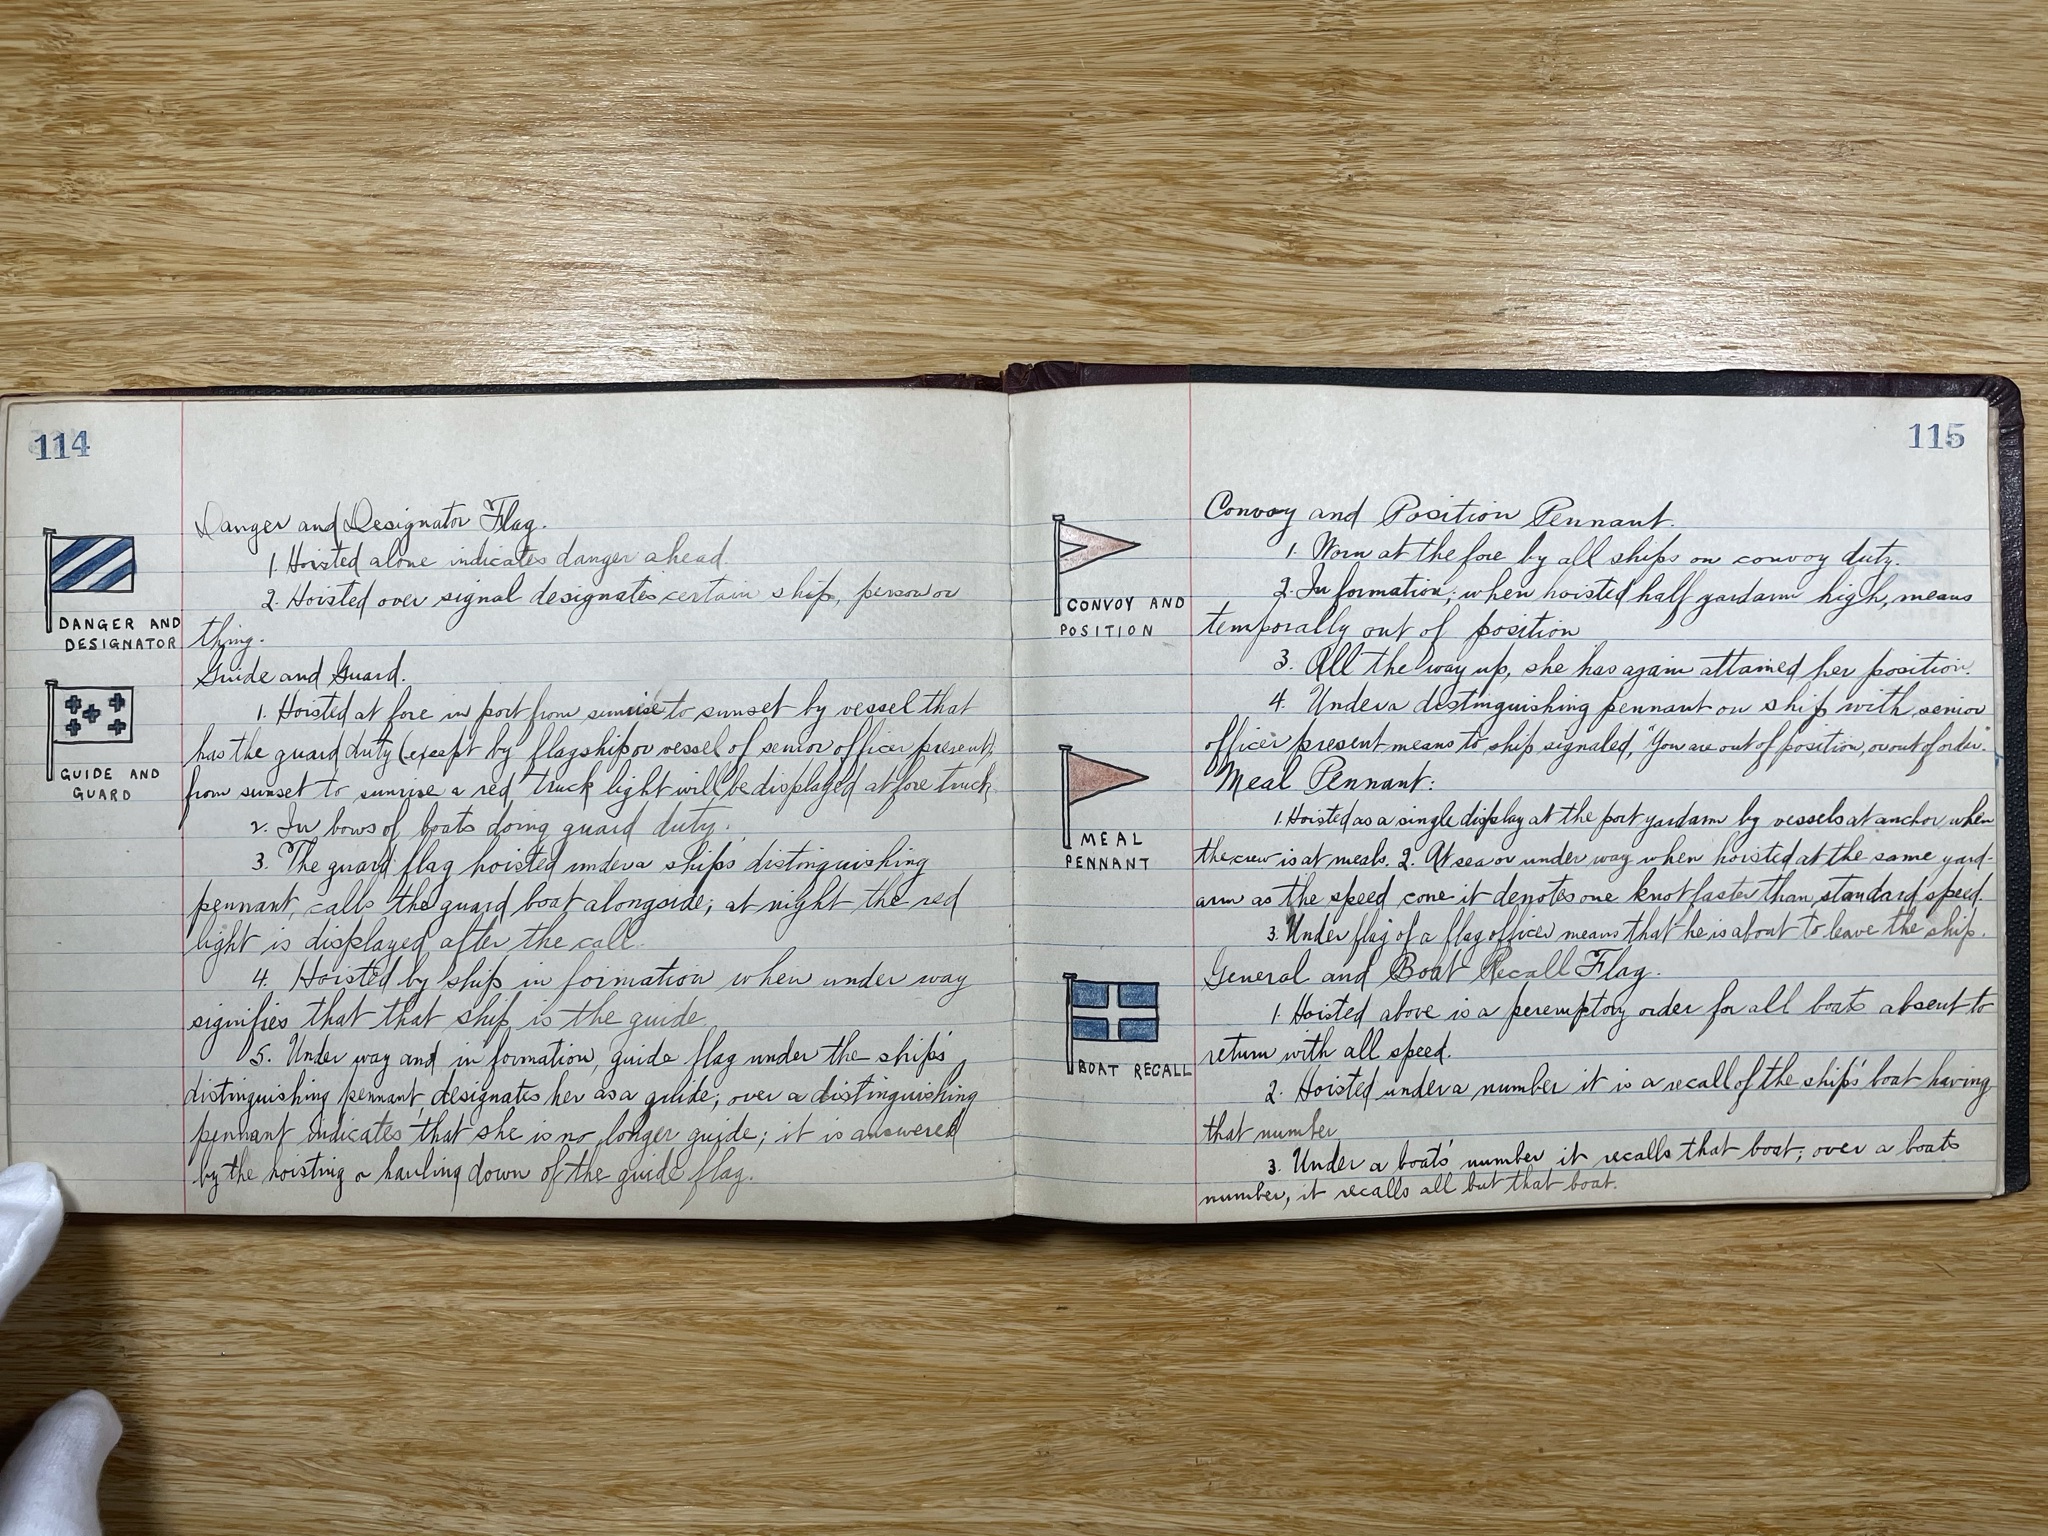 114
Danger and Designator Flag.
1. Hoisted alone indicates danger ahead.
2. Hoisted over signal designates certain ship, person or
thing.
DANGER AND
DESIGNATOR
Guide and Guard.
1. Hoisted at fore in port from sunrise to sunset by vessel that
has the guard duty (except by flagship or vessel of senior officer present),
from sunset to sunrise a red truck light will be displayed at fore truck.
GUIDE AND
GUARD
2. In bows of boats doing guard duty.
3. The guard flag hoisted under a ship's distinguishing
pennant, calls the guard boat alongside; at night the red
light is displayed after the call.
4. Hoisted by ship in formation when under way
signifies that that ship is the guide.
5. Under way and in formation, guide flag under the ship's
distinguishing pennant designates her as a guide; over a distinguishing
pennant indicates that she is no longer guide; it is answered
by the hoisting or hauling down of the guide flag.
115
Convoy and Position Pennant.
1. Worn at the fore by all ships on convoy duty.
2. In formation; when hoisted half yardarm high, means
temporally out of position
CONVOY AND
POSITION
3. All the way up, she has again attained her position.
4. Under a distinguishing pennant on ship with senior
officer present means to ship signaled, "You are out of position, or out of order".
Meal Pennant:
1. Hoisted as a single display at the port yardarm by vessels at anchor, when
the crew is at meals. 2. At sea or under way when hoisted at the same yard-
arm as the speed cone it denotes one knot faster than standard speed.
MEAL
PENNANT
3. Under flag of a flag officer means that he is about to leave the ship.
General and Boat Recall Flag.
1. Hoisted above is a peremptory order for all boats absent to
return with all speed.
BOAT RECALL
2. Hoisted under a number it is a recall of the ship's boat having
that number
3. Under a boats' number it recalls that boat; over a boats
number, it recalls all but that boat.